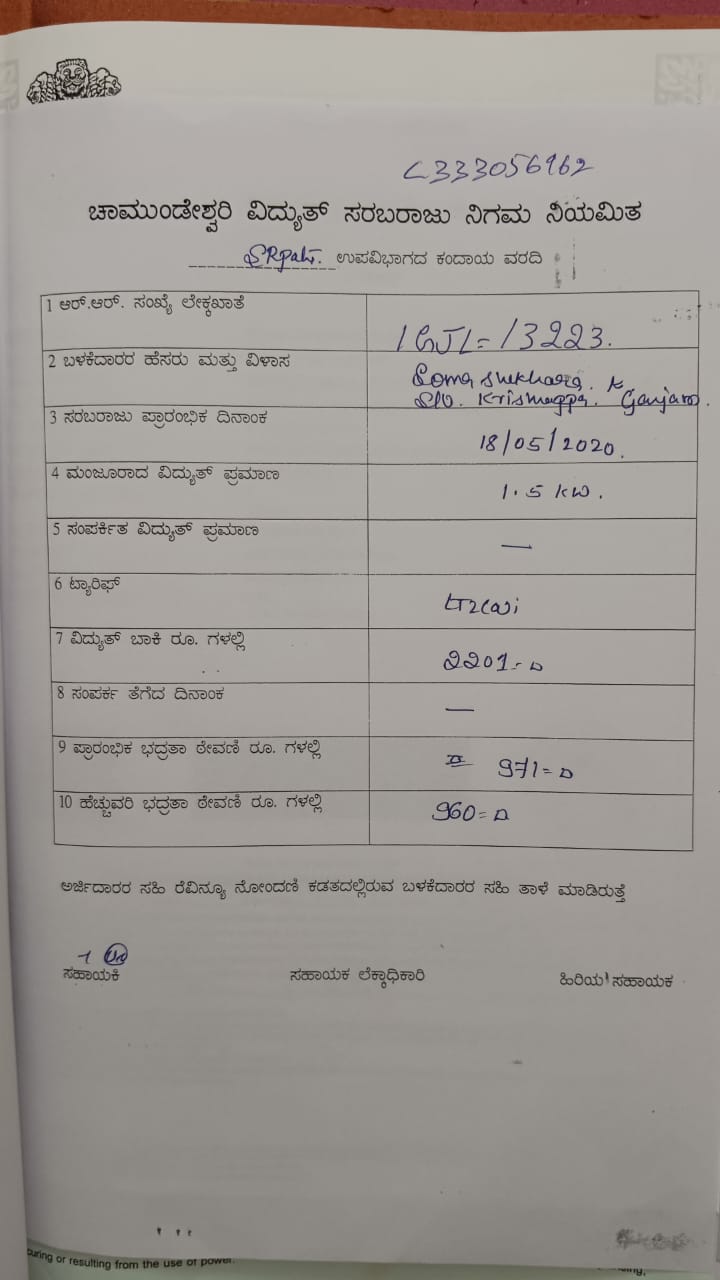 C333056962
ಚಾಮುಂಡೇಶ್ವರಿ ವಿದ್ಯುತ್ ಸರಬರಾಜು ನಿಗಮ ನಿಯಮಿತ
SRPatn. ಉಪವಿಭಾಗದ ಕಂದಾಯ ವರದಿ
1 ಆರ್.ಆರ್. ಸಂಖ್ಯೆ ಲೇಕ್ಕಖಾತೆ
13223.
2 ಬಳಕೆದಾರರ ಹೆಸರು ಮತ್ತು ವಿಳಾಸ
Soma Shekhara. K
S/o. Krishnappa. Ganjam.
3 ಸರಬರಾಜು ಪ್ರಾರಂಭಿಕ ದಿನಾಂಕ
18/05/2020.
4 ಮಂಜೂರಾದ ವಿದ್ಯುತ್ ಪ್ರಮಾಣ
1.5 KW.
5 ಸಂಪರ್ಕಿತ ವಿದ್ಯುತ್ ಪ್ರಮಾಣ
—
6 ಟ್ಯಾರಿಫ್
7 ವಿದ್ಯುತ್ ಬಾಕಿ ರೂ. ಗಳಲ್ಲಿ
2201=00
8 ಸಂಪರ್ಕ ತೆಗೆದ ದಿನಾಂಕ
—
9 ಪ್ರಾರಂಭಿಕ ಭದ್ರತಾ ಠೇವಣಿ ರೂ. ಗಳಲ್ಲಿ
971=00
10 ಹೆಚ್ಚುವರಿ ಭದ್ರತಾ ಠೇವಣಿ ರೂ. ಗಳಲ್ಲಿ
960=00
ಅರ್ಜಿದಾರರ ಸಹಿ ರೆವಿನ್ಯೂ ನೋಂದಣಿ ಕಡತದಲ್ಲಿರುವ ಬಳಕೆದಾರರ ಸಹಿ ತಾಳೆ ಮಾಡಿರುತ್ತೆ
ಸಹಾಯಕಿ ಸಹಾಯಕ ಲೆಕ್ಕಾಧಿಕಾರಿ ಹಿರಿಯ ಸಹಾಯಕ
or resulting from the use of power.